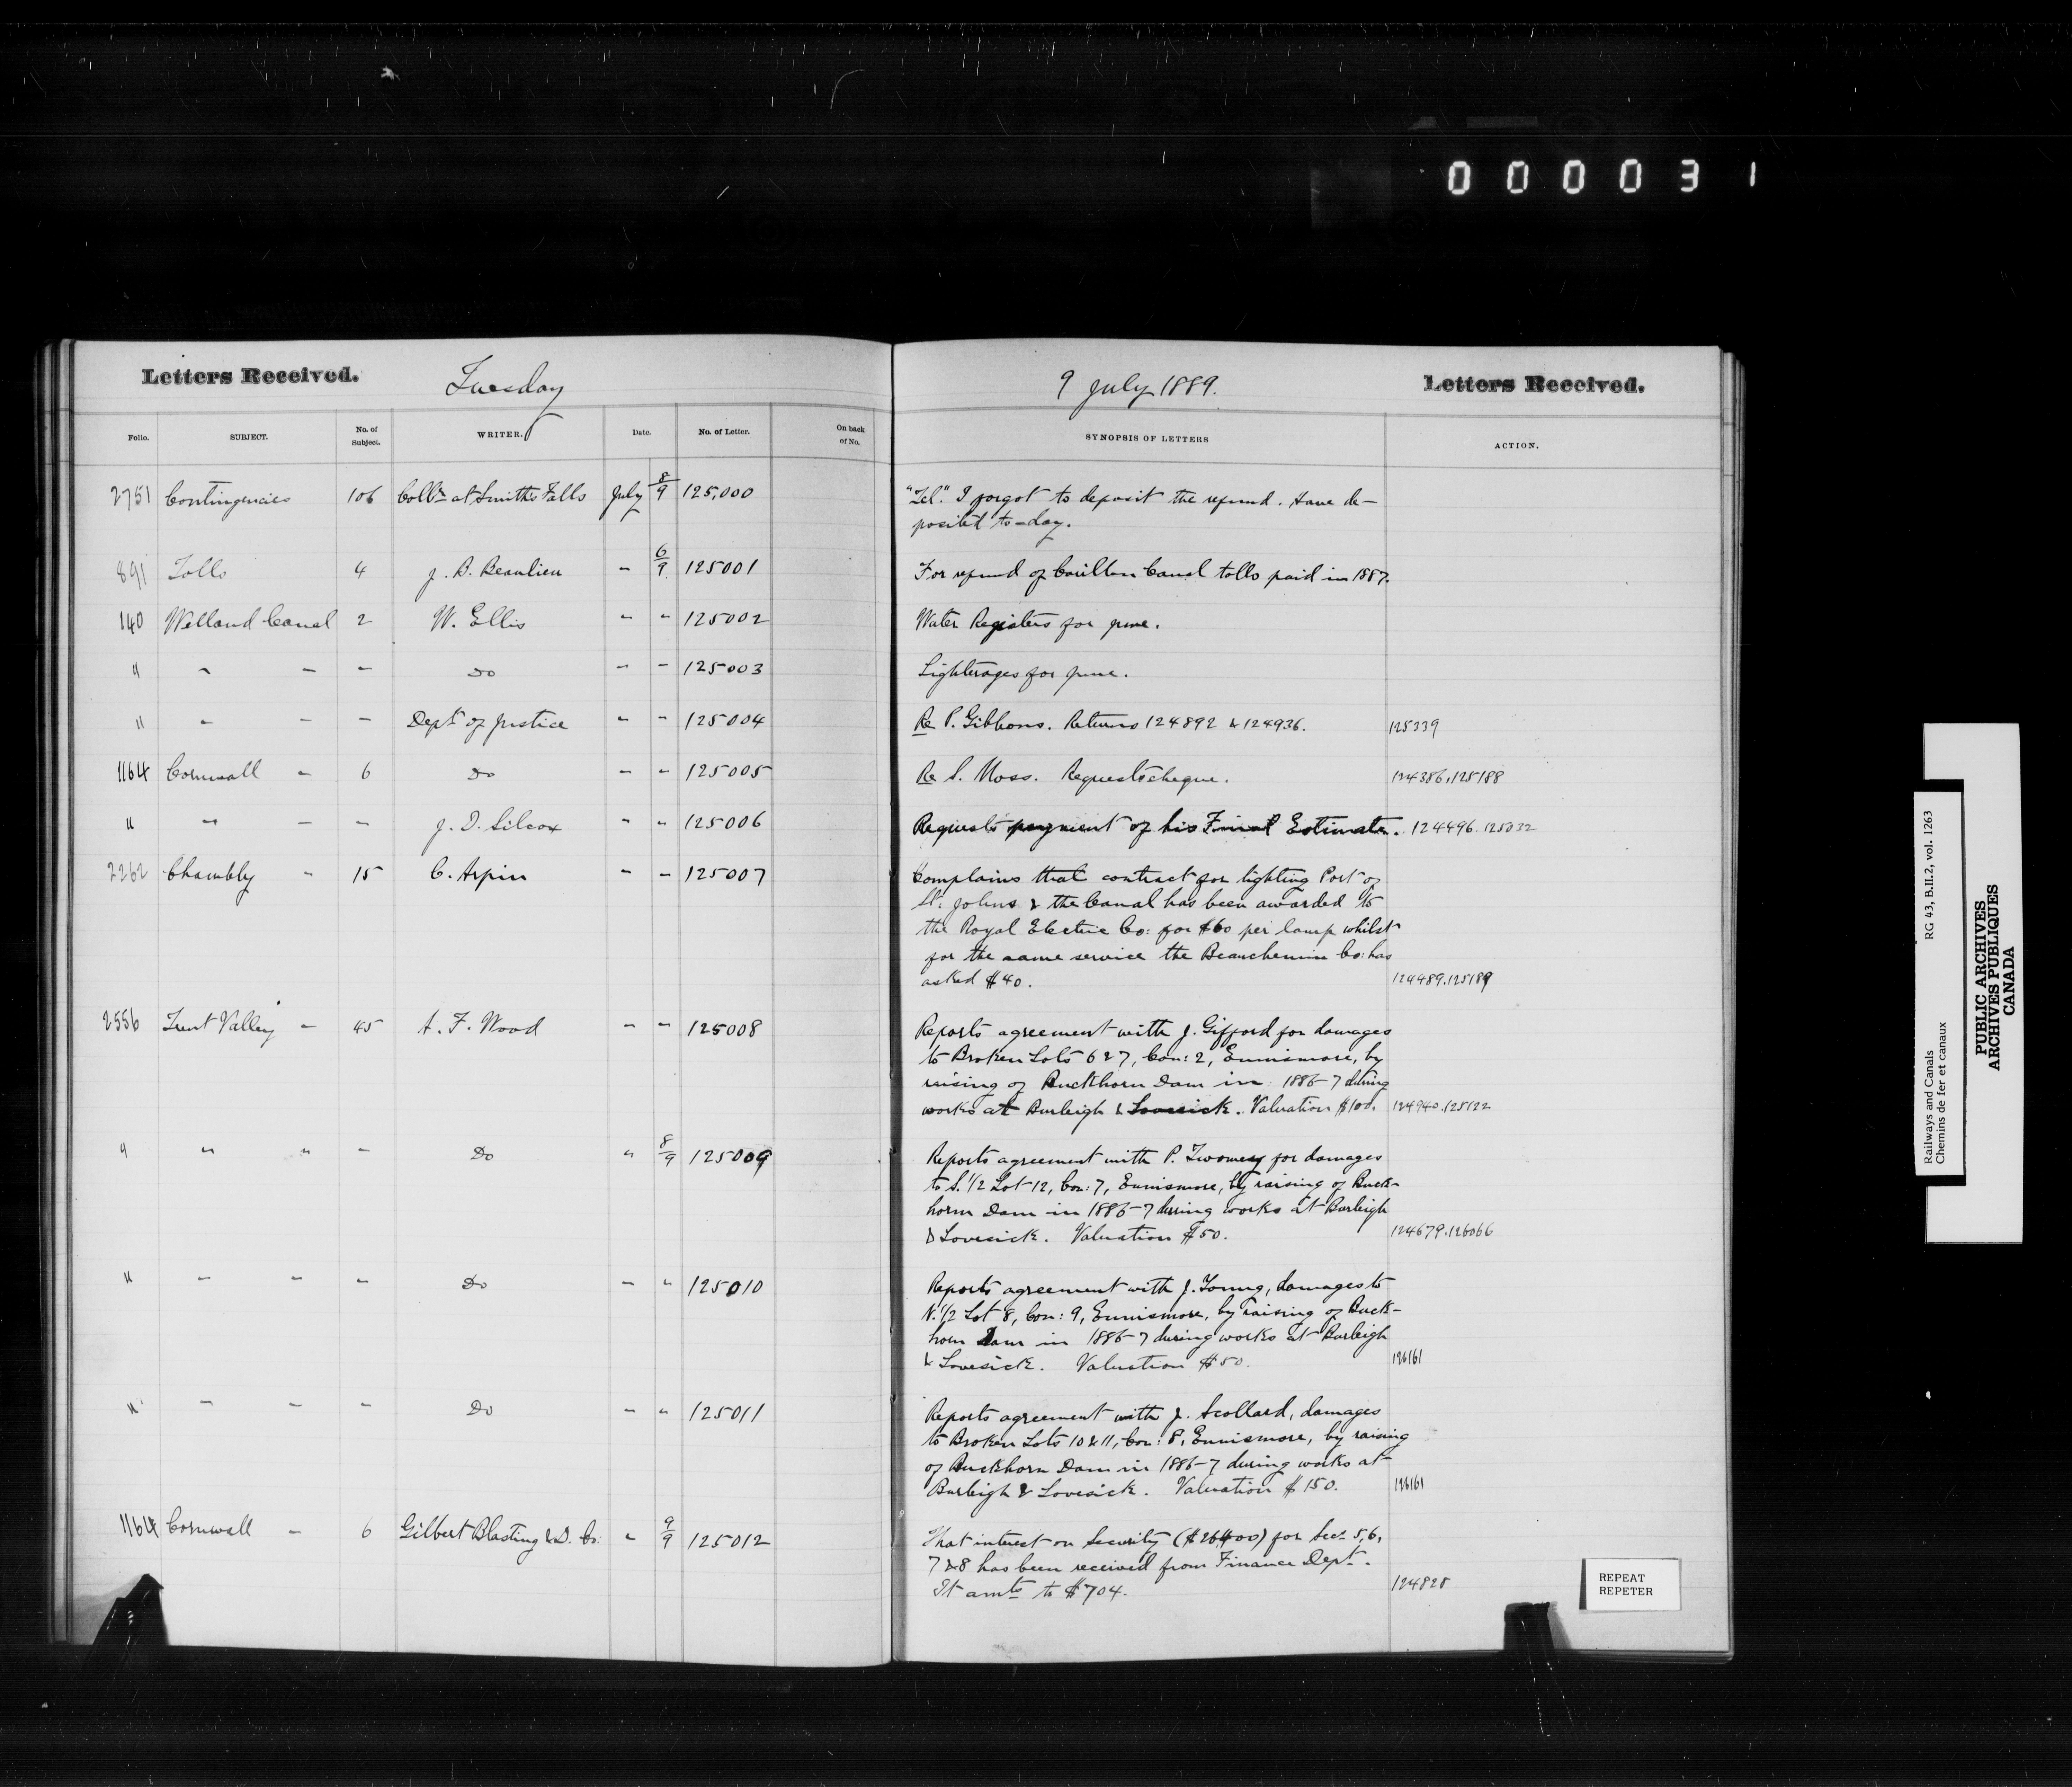 000031
Letters Received. Tuesday
9 July 1889. Letters Received.
Folio. SUBJECT. No. of Subject. WRITER. Date. No. of Letter. On back of No. SYNOPSIS OF LETTERS ACTION.
2751 Contingencies 106 Collr at Smiths Falls July 8/9 125,000 "Tel". I forgot to deposit the refund. Have de-
posited to-day.
891 Tolls 4 J. B. Beaulieu - 6/9 125001 For refund of Carillon Canal tolls paid in 1887.
140 Welland Canal 2 W. Ellis - " 125002 Water Registers for June.
" " - - Do - - 125003 Lighterages for June.
" " - - Dept of Justice - - 125004 Re P. Gibbons. Returns 124892 & 124936. 125339
1164 Cornwall - 6 Do - - 125005 Re S. Moss. Requests cheque. 124386,125188
" " - - J. D. Silcox " " 125006 Requests payment of his Final Estimate. 124496.125032
2262 Chambly - 15 C. Arpin - - 125007 Complains that contract for lighting Port of
St: Johns & the Canal has been awarded to
the Royal Electric Co: for $60 per lamp whilst
for the same service the Beauchemin Co: has
asked $40. 124489.125189
2556 Trent Valley - 45 A. F. Wood - - 125008 Reports agreement with J. Gifford for damages
to Broken Lots 6 & 7, Con: 2, Ennismore, by
raising of Buckhorn Dam in 1886-7 during
works at Burleigh & Lovesick. Valuation $100. 124940.125122
" " " - Do " 8/9 125009 Reports agreement with P. Twomey for damages
to S. 1/2 Lot 12, Con: 7, Ennismore, by raising of Buck-
horn Dam in 1886-7 during works at Burleigh
& Lovesick. Valuation $50. 124679.126066
" - - - Do - " 125010 Reports agreement with J. Young, damages to
N. 1/2 Lot 8, Con: 9, Ennismore, by raising of Buck-
horn Dam in 1886-7 during works at Burleigh
& Lovesick. Valuation $50. 126161
" - - - Do - " 125011 Reports agreement with J. Scollard, damages
to Broken Lots 10 & 11, Con: 8, Ennismore, by raising
of Buckhorn Dam in 1886-7 during works at
Burleigh & Lovesick. Valuation $150. 126161
1164 Cornwall - 6 Gilbert Blasting & D. Co: " 9/9 125012 That interest on Security ($26400) for Secs 5,6,
7 & 8 has been received from Finance Dept.
It amts to $704. 124828
REPEAT
REPETER
Railways and Canals RG 43, B.II.2, vol. 1263
Chemins de fer et canaux
PUBLIC ARCHIVES
ARCHIVES PUBLIQUES
CANADA